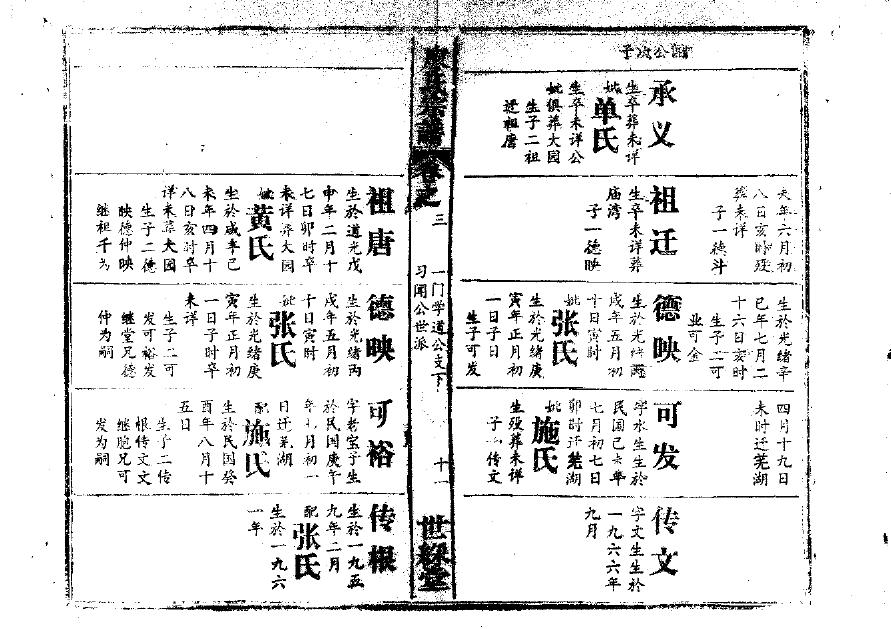 公次子
承义
生卒葬未详
妣单氏
生卒未详公
妣俱葬大园
生子二祖
迁祖唐
年六月初
八日亥时殁
葬未详
子一德斗
祖迁
生卒未详葬
庙湾
子一德映
生於光绪辛
巳年七月二
十六日亥时
生子二可
业可金
德映
生於光绪
戌年五月初
十日寅时
妣张氏
生於光绪庚
寅年正月初
一日子日
生子可发
四月十九日
未时迁芜湖
可发
字水生生於
民国己未年
七月初七日
卯时迁芜湖
妣施氏
生殁葬未详
子一传文
传文
字文生生於
一九六六年
九月
氏宗谱
卷之三
一门学道公支下
习闻公世派
十一
世綵堂
祖唐
生於道光戊
申年二月十
七日卯时卒
未详葬大园
妣黄氏
生於咸丰己
未年四月十
八日亥时卒
详未葬大园
生子二德
映德仲映
继祖千为
德映
生於光绪丙
戌年五月初
十日寅时
妣张氏
生於光绪庚
寅年正月初
一日子时卒
未详
生子二可
发可裕发
继堂兄德
仲为嗣
可裕
字老宝子生
於民国庚午
年七月初一
日迁芜湖
配施氏
生於民国癸
酉年八月十
五日
生子二传
根传文文
继胞兄可
发为嗣
传根
生於一九五
九年二月
配张氏
生於一九六
一年